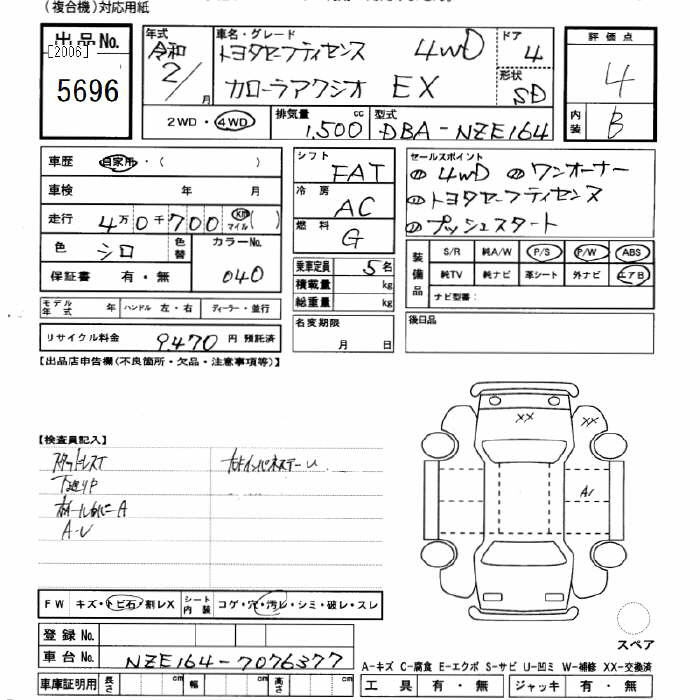 (複合機)対応用紙
出品No.
[2006]
5696
年式
令和
2/
月
車名・グレード
トヨタセーフティセンス 4WD
カローラアクシオ EX
ドア
4
形状
SD
評価点
4
内装
B
2WD・4WD
排気量
cc
1,500
型式
DBA-NZE164
車歴
自家用・( )
車検
年 月
走行
4万0千700
km
マイル( )
色
シロ
色替
カラーNo.
040
保証書
有・無
シフト
FAT
冷房
AC
燃料
G
乗車定員
5名
積載量
kg
総重量
kg
セールスポイント
4WD ワンオーナー
トヨタセーフティセンス
プッシュスタート
装備品
S/R 純A/W P/S P/W ABS
純TV 純ナビ 革シート 外ナビ エアB
ナビ型番:
モデル年式
年
ハンドル 左・右
ディーラー・並行
リサイクル料金
9,470
円 預託済
名変期限
月 日
後日品
【出品店申告欄(不良箇所・欠品・注意事項等)】
【検査員記入】
A-U
XX
XX
A1
FW
キズ・トビ石・割レX
シート内装
コゲ・穴・汚レ・シミ・破レ・スレ
登録No.
車台No.
NZE164-7076377
車庫証明用
長さ
cm
幅
cm
高さ
cm
スペア
A-キズ C-腐食 E-エクボ S-サビ U-凹ミ W-補修 XX-交換済
工具 有・無
ジャッキ 有・無